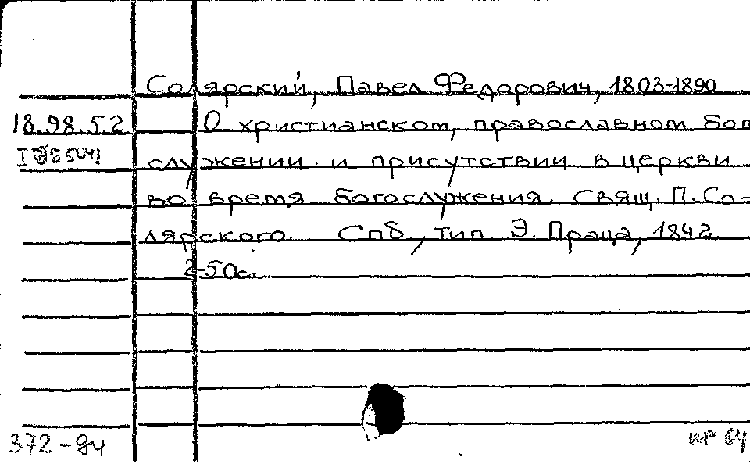 Солярский, Павел Федорович, 1803-1890
18.98.5.2 О христианском, православном бог
служении и присутствии в церкви
во время богослужения. Свящ. П. Со-
лярского Спб, тип Э. Праца, 1842
2-50с.
372-84